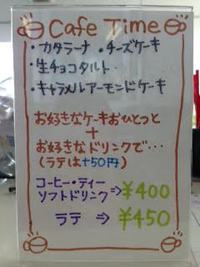 Cafe Time
・カタラーナ ・チーズケーキ
・生チョコタルト
・キャラメルアーモンドケーキ
お好きなケーキおひとつと
+
お好きなドリンクで…
(ラテは+50円)
コーヒー・ティー
ソフトドリンク ⇒¥400
ラテ ⇒ ¥450